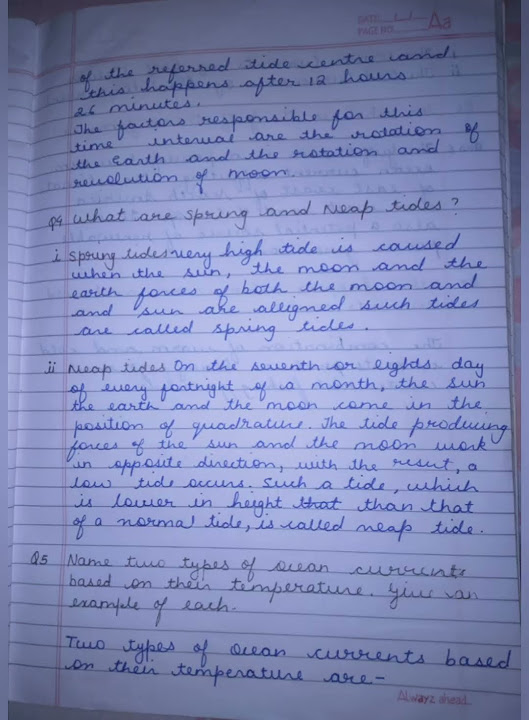 DATE: / /
PAGE NO.: Aa
of the referred tide centre and
this happens after 12 hours
26 minutes.
The factors responsible for this
time interval are the rotation of
the Earth and the rotation and
revolution of moon.
Q4 What are spring and Neap tides?
i Spring tides very high tide is caused
when the sun, the moon and the
earth forces of both the moon and
and sun are alligned such tides
are called spring tides.
ii Neap tides On the seventh or eights day
of every fortnight of a month, the sun
the earth and the moon come in the
position of quadrature. The tide producing
forces of the sun and the moon work
in opposite direction, with the result, a
low tide occurs. Such a tide, which
is lower in height that than that
of a normal tide, is called neap tide.
Q5 Name two types of ocean currents
based on their temperature. Give an
example of each.
Two types of ocean currents based
on their temperature are-
Alwayz ahead